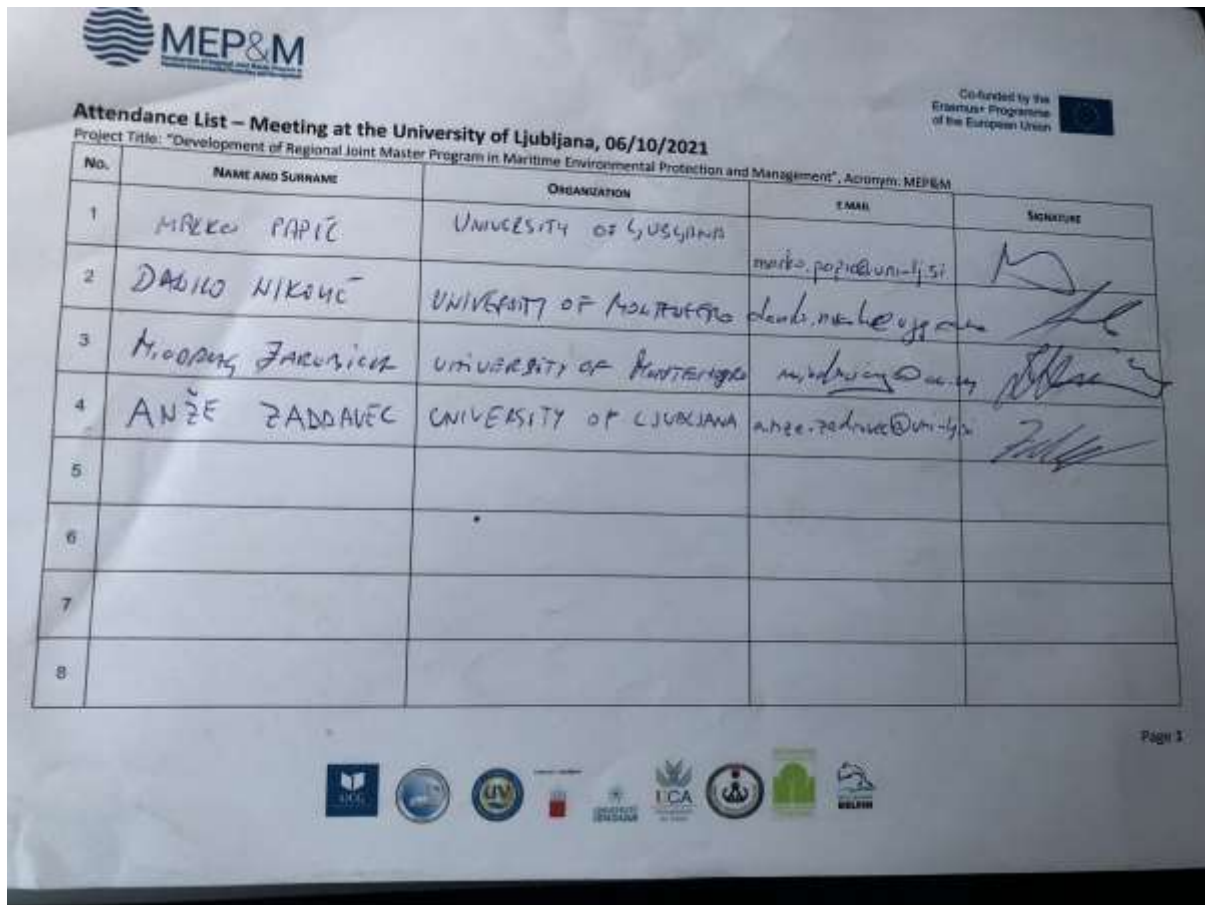 MEP&M
Co-funded by the
Erasmus+ Programme
of the European Union
Attendance List – Meeting at the University of Ljubljana, 06/10/2021
Project Title: "Development of Regional Joint Master Program in Maritime Environmental Protection and Management", Acronym: MEP&M
No. NAME AND SURNAME ORGANIZATION EMAIL SIGNATURE
1 MARKO PAPIĆ UNIVERSITY OF LJUBLJANA marko.papic@uni-lj.si
2 UNIVERSITY OF MONTENEGRO
3 UNIVERSITY OF MONTENEGRO
4 ANŽE ZADRAVEC UNIVERSITY OF LJUBLJANA anze.zadravec@uni-lj.si
5
6
7
8
Page 1
UCG
UV
UCA
DELFIN